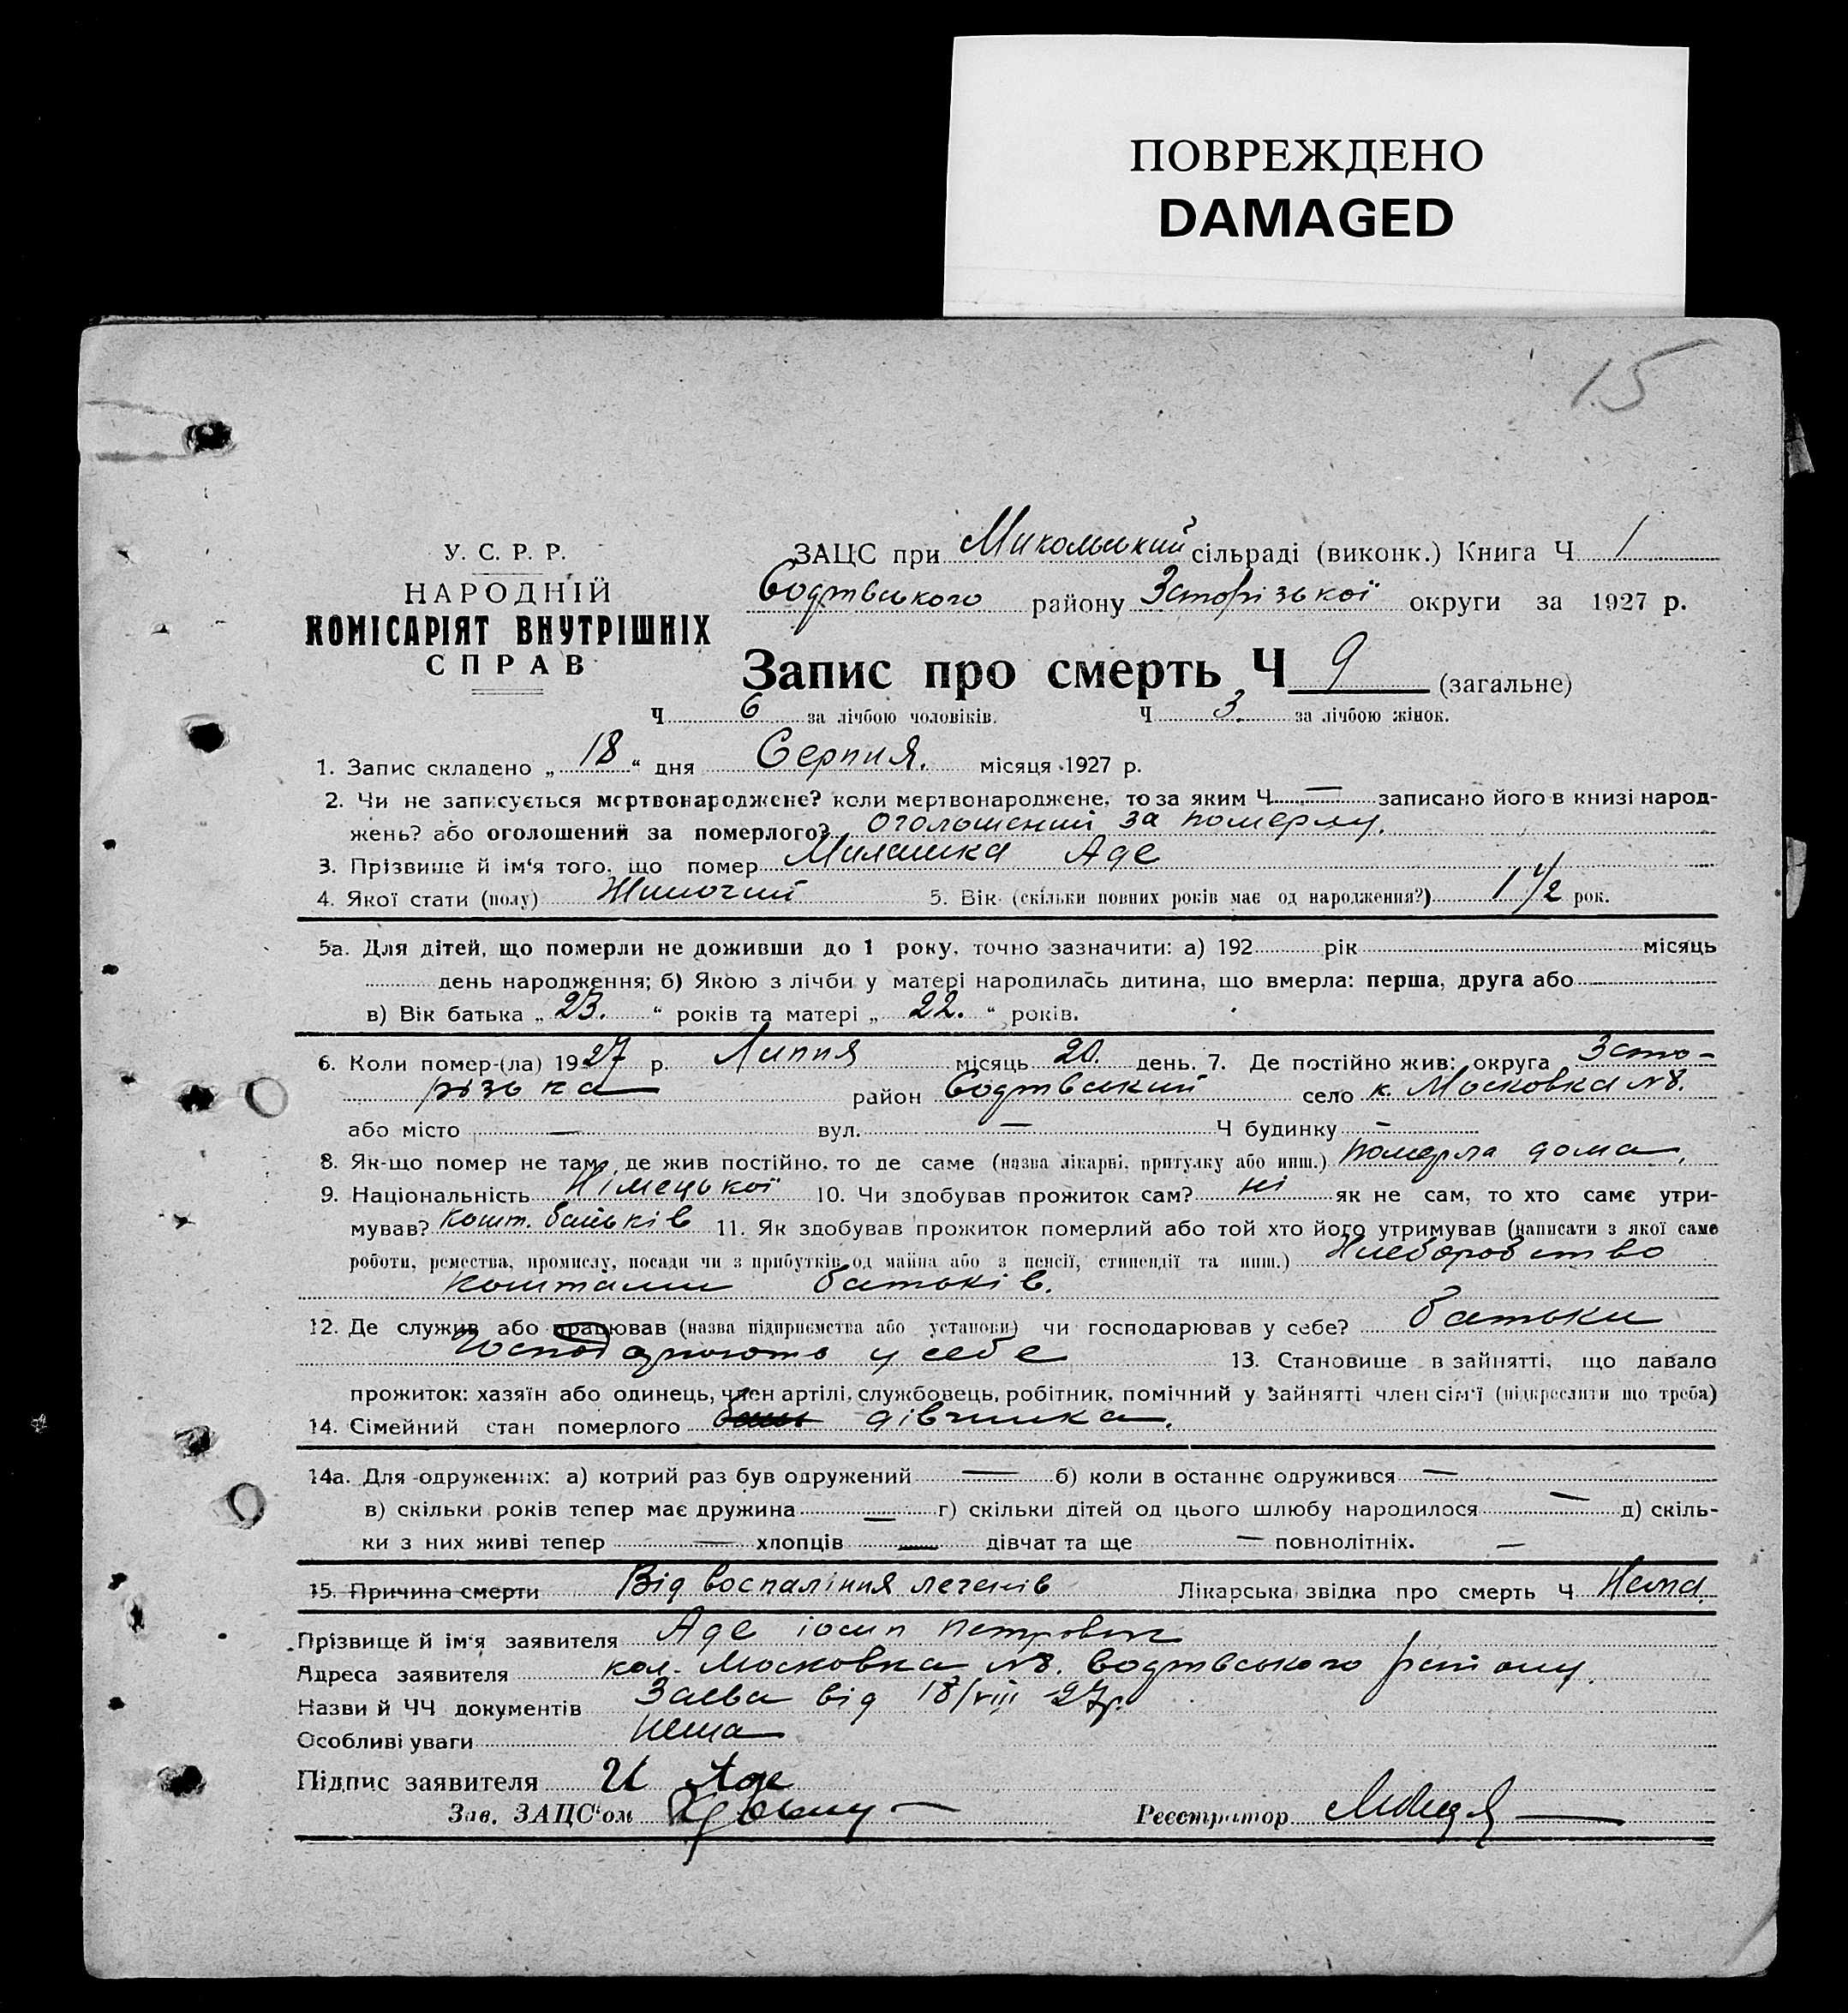 ПОВРЕЖДЕНО
DAMAGED
15
У. С. Р. Р.
НАРОДНІЙ
КОМІСАРІЯТ ВНУТРІШНІХ
СПРАВ
ЗАЦС при Микольский сільраді (виконк.) Книга Ч 1
району Запорізької округи за 1927 р.
Запис про смерть Ч 9 (загальне)
Ч 6 за лічбою чоловіків. Ч 3. за лічбою жінок.
1. Запис складено „ 18 “ дня Серпня. місяця 1927 р.
2. Чи не записується мертвонароджене? коли мертвонароджене, то за яким Ч — записано його в книзі народ-
жень? або оголошений за померлого? оголошений за померлу.
3. Прізвище й ім'я того, що помер Аде
4. Якої стати (полу) Жиночий 5. Вік (скільки повних років має од народження?) 1 1/2 рок.
5а. Для дітей, що померли не доживши до 1 року, точно зазначити: а) 192 рік місяць
день народження; б) Якою з лічби у матері народилась дитина, що вмерла: перша, друга або
в) Вік батька „ 23. “ років та матері „ 22. “ років.
6. Коли помер-(ла) 1927 р. Липня місяць 20. день. 7. Де постійно жив: округа Запо-
різька район село к. Московка №8.
або місто — вул. — Ч будинку —
8. Як-що помер не там, де жив постійно, то де саме (назва лікарні, притулку або инш.) померла дома.
9. Національність Німецької 10. Чи здобував прожиток сам? ні як не сам, то хто саме утри-
мував? кошт. батьків 11. Як здобував прожиток померлий або той хто його утримував (написати з якої саме
роботи, ремества, промислу, посади чи з прибутків од майна або з пенсії, стипендії та инш.) Хлеборобство
коштами батьків.
12. Де служив або працював (назва підприємства або установи) чи господарював у себе? батьки
господарюють у себе 13. Становище в зайнятті, що давало
прожиток: хазяїн або одинець, член артілі, службовець, робітник, помічний у зайнятті член сім'ї (підкреслити що треба)
14. Сімейний стан померлого дівчинка.
14а. Для одружених: а) котрий раз був одружений — б) коли в останнє одружився —
в) скільки років тепер має дружина — г) скільки дітей од цього шлюбу народилося — д) скіль-
ки з них живі тепер — хлопців — дівчат та ще — повнолітніх. —
15. Причина смерти Від воспаління легенів Лікарська звідка про смерть Ч Нема
Прізвище й ім'я заявителя Аде іосип Петрович
Адреса заявителя кол. Московка №8. району.
Назви й ЧЧ документів Заева від 18/VIII 27р.
Особливі уваги нема
Підпис заявителя И Аде
Зав. ЗАЦС'ом
Реєстратор